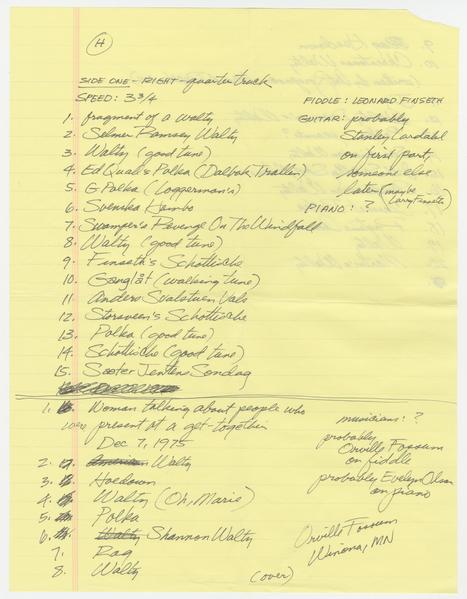 H
SIDE ONE - RIGHT - quarter track
SPEED: 3 3/4
FIDDLE: LEONARD FINSETH
GUITAR: probably
Stanley Lardahl
on first part,
someone else
later (maybe
Larry Finseth)
PIANO: ?
1. fragment of a waltz
2. Selmer Ramsey Waltz
3. Waltz (good tune)
4. Ed Quall's Polka (Dalbak Trallen)
5. G Polka (Loggerman's)
6. Svenska Hambo
7. Swamper's Revenge On The Windfall
8. Waltz (good tune)
9. Finseth's Schottische
10. Ganglåt (walking tune)
11. Anders Svalstuen Vals
12. Storsveen's Schottische
13. Polka (good tune)
14. Schottische (good tune)
15. Seeter Jentens Sondag
1. Woman talking about people who
were present at a get-together
Dec 7, 1975
2. American Waltz
3. Hoedown
4. Waltz (Oh, Marie)
5. Polka
6. Waltz Shannon Waltz
7. Rag
8. Waltz
(over)
musicians: ?
probably
Orville Fossum
on fiddle
probably Evelyn Olson
on piano
Orville Fossum
Winona, MN